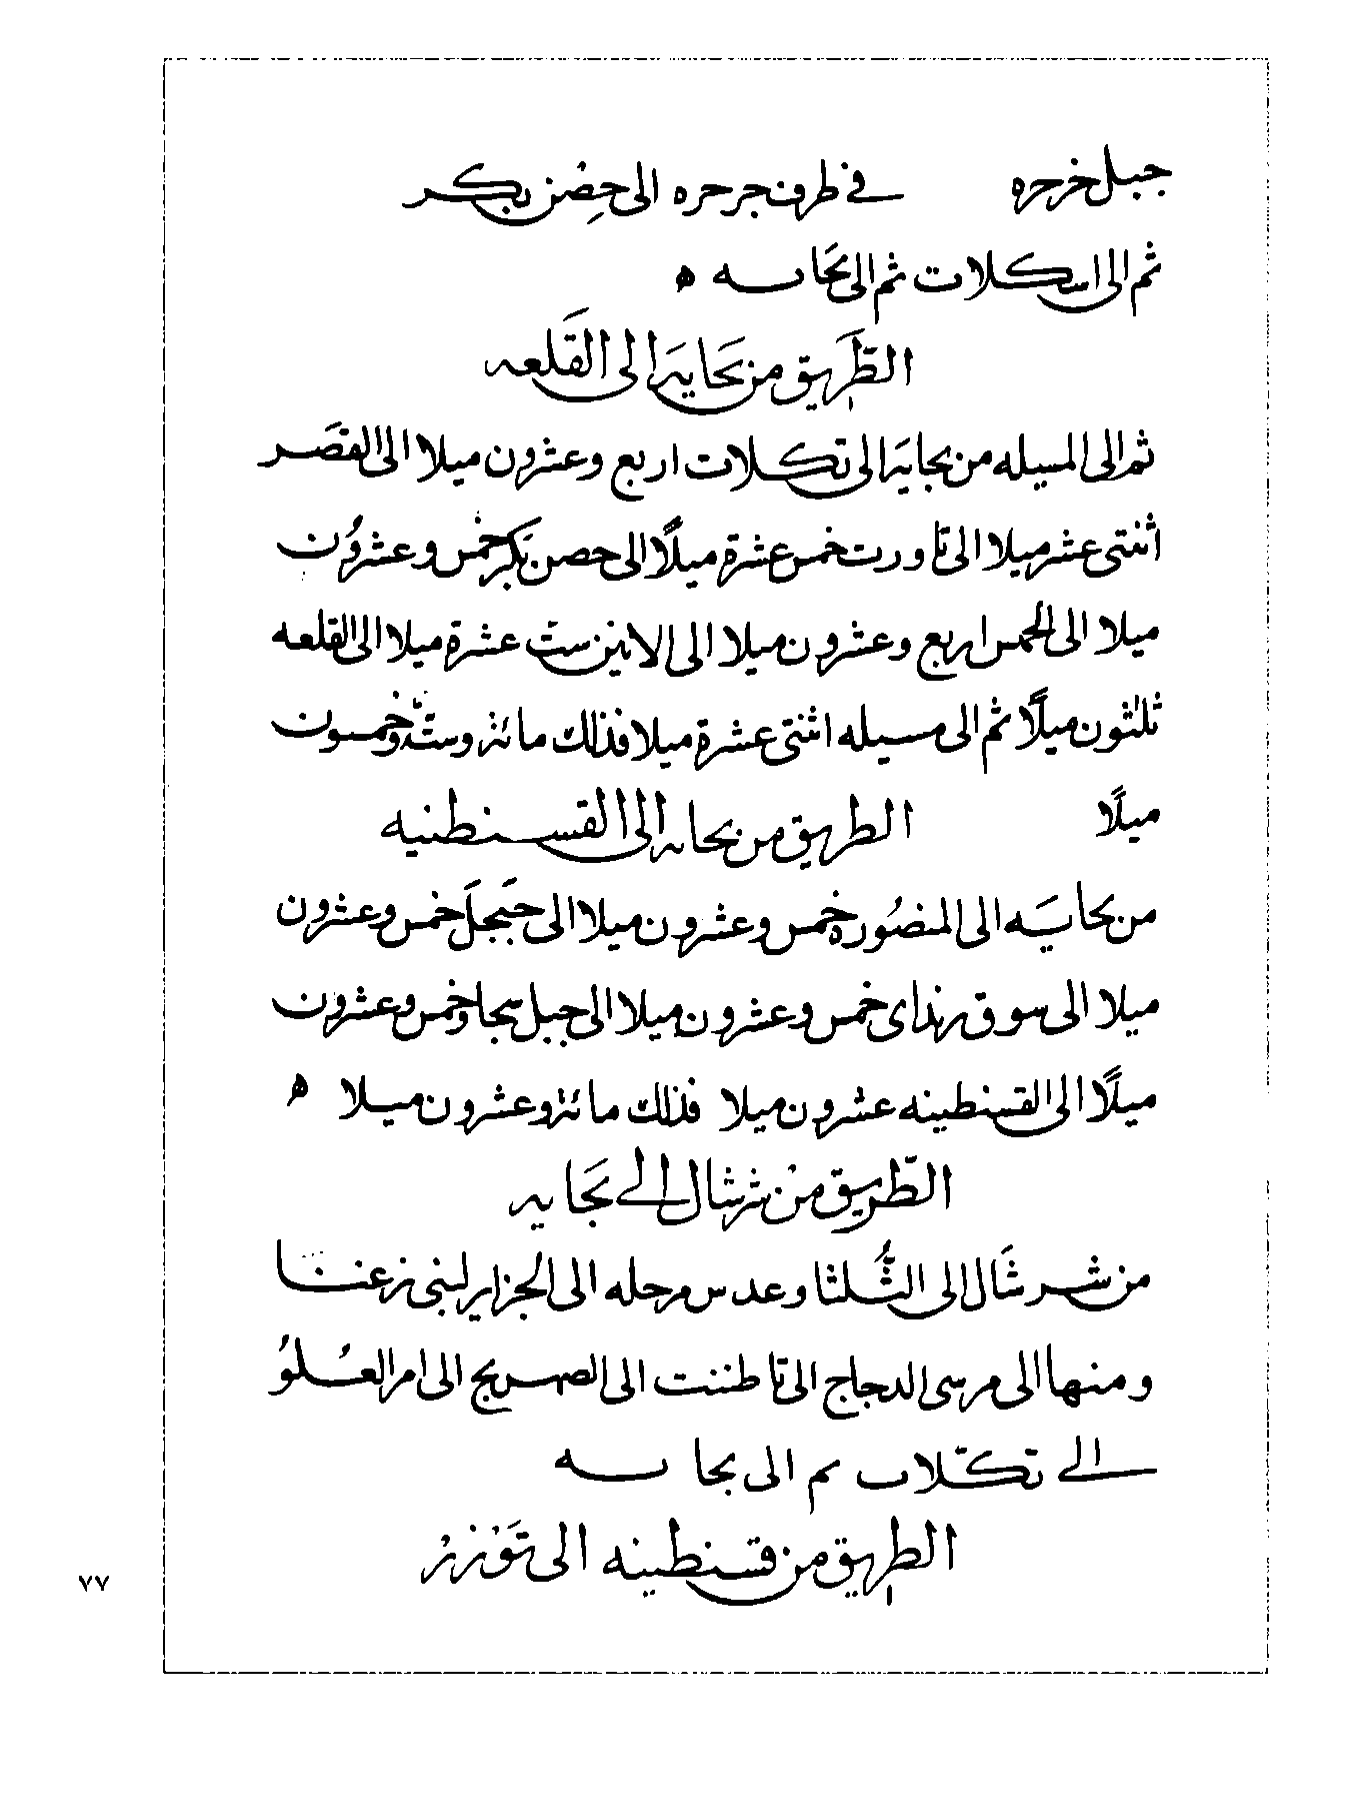 جبل خرحره في طرف جرحره الى حِصْن بكر
ثم الى اسكلات ثم الى بحَاسه ه
الطَّريق من بَحَايَه الى القَلعه
ثم الى المسيله من بجايَه الى تكلات اربع وعشرون ميلا الى القصَر
اثنتى عشر ميلا الى تاورت خمس عشرة ميلًا الى حصن بَكر خمْس وعشرُون
ميلا الى الخمس اربع وعشرون ميلا الى الاثنين ست عشرة ميلا الى القلعه
ثلثون ميلًا ثم الى مسيله اثنتى عشرة ميلا فذلك مائة وستة وخمسون
ميلًا الطريق من بحايه الى القسنطنيه
من بحايَه الى المنصُوره خمس وعشرون ميلا الى جَيجلَ خمس وعشرون
ميلا الى سوق خمس وعشرون ميلا الى جبل سجاو خمس وعشرون
ميلًا الى القسنطينه عشرون ميلا فذلك مائة وعشرون ميلا ه
الطّريق منْ شرشال الى بجَايه
من شرشَال الى الثُّلثا وعدس مرحله الى الجزاير لبنى زغننا
ومنها الى مرسى الدجاج الى تاطننت الى الصهريج الى ام العُلوُ
الى تكّلات ثم الى بجاسه
الطريق من قسنطينه الى تَوْزرْ
٧٧